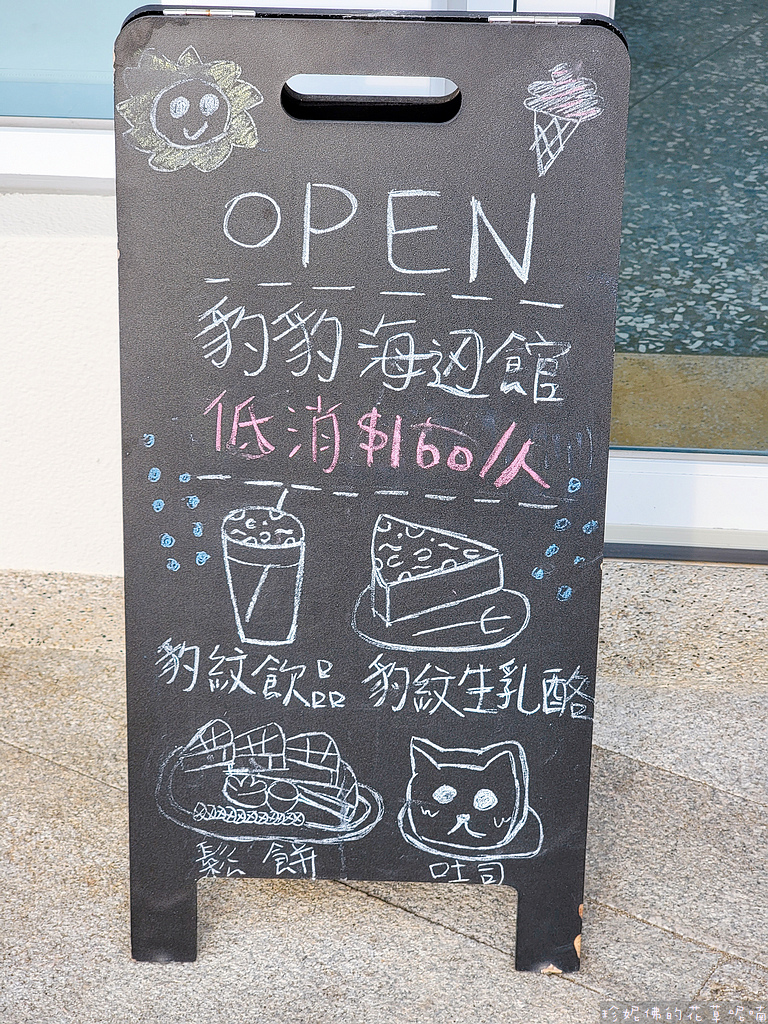 OPEN
豹豹海边館
低消$160/人
豹紋飲品
豹紋生乳酪
鬆餅
吐司
珍妮佛的花草呢喃